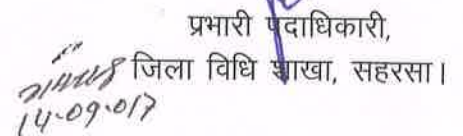 प्रभारी पदाधिकारी,
जिला विधि शाखा, सहरसा।
14-09-017